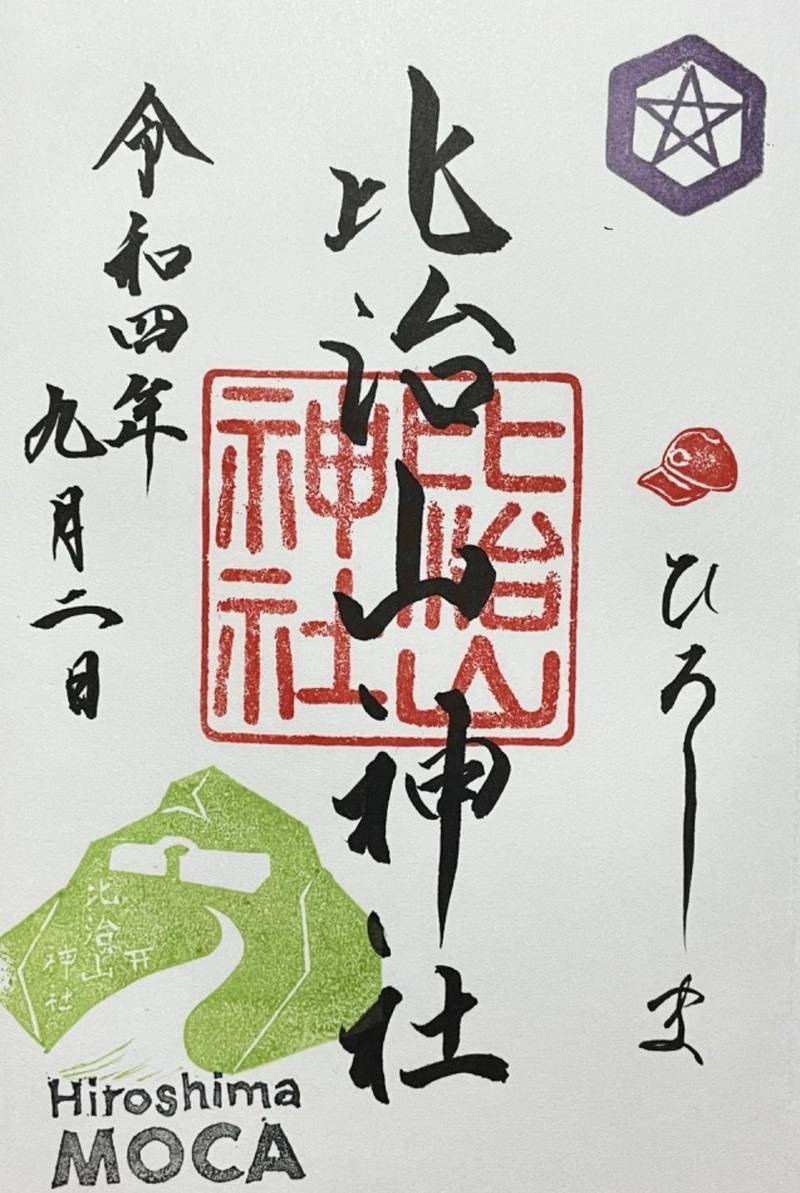 ひろしま
比治山神社
比治山
神社
令和四年
九月二日
比治山
神社
Hiroshima
MOCA